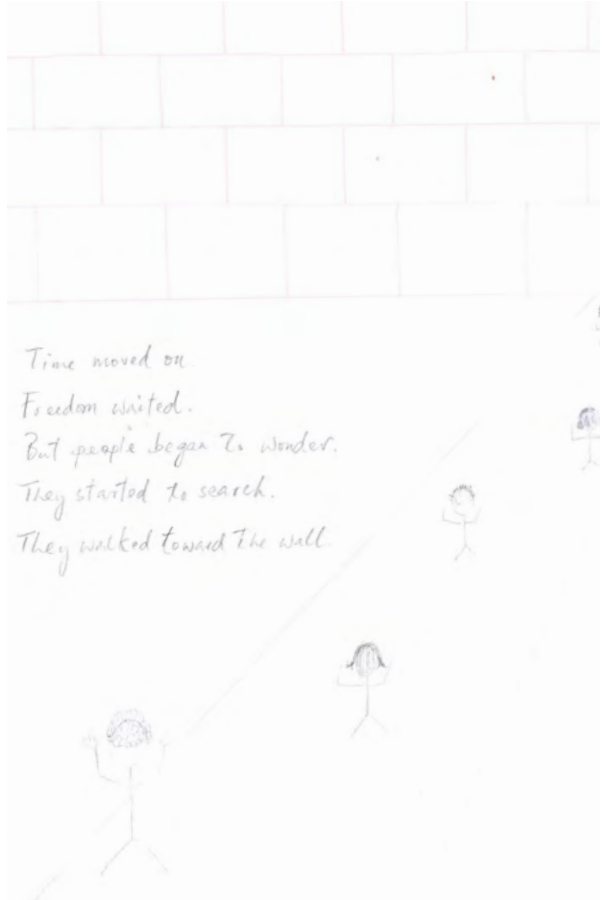 Time moved on
Freedom waited.
But people began To wonder.
They started to search.
They walked toward The wall.